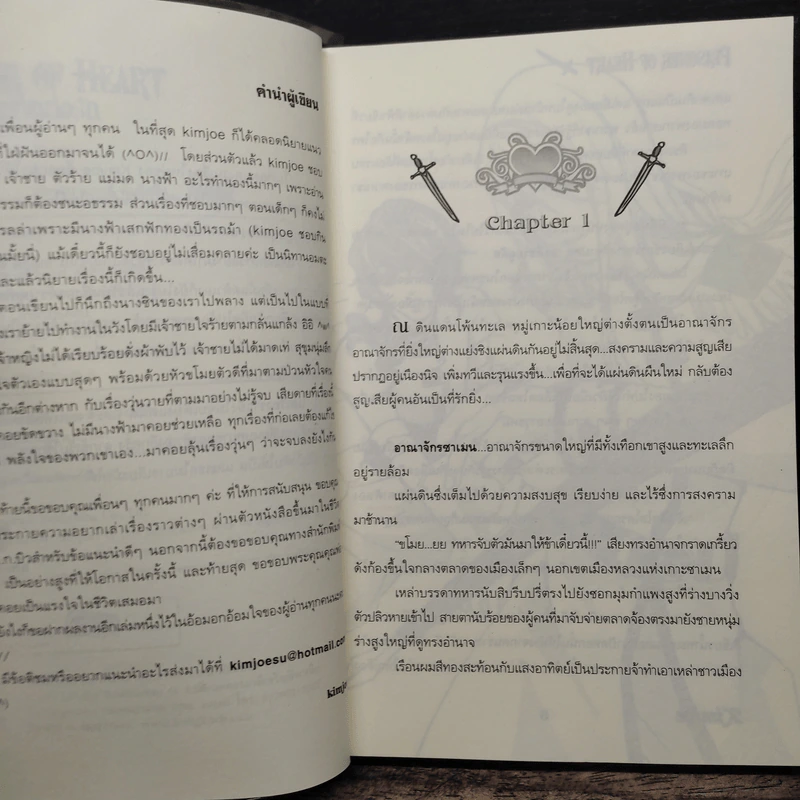 คำนำผู้เขียน
เพื่อนผู้อ่านๆ ทุกคน ในที่สุด kimjoe ก็ได้คลอดนิยายแนว
ที่ใฝ่ฝันออกมาจนได้ (^O^)// โดยส่วนตัวแล้ว kimjoe ชอบ
เจ้าชาย ตัวร้าย แม่มด นางฟ้า อะไรทำนองนี้มากๆ เพราะอ่าน
ธรรมก็ต้องชนะอธรรม ส่วนเรื่องที่ชอบมากๆ ตอนเด็กๆ ก็คงไม่
เรลล่าเพราะมีนางฟ้าเสกฟักทองเป็นรถม้า (kimjoe ชอบกิน
นมั้ยนี่) แม้เดี๋ยวนี้ก็ยังชอบอยู่ไม่เสื่อมคลายค่ะ เป็นนิทานอมตะ
และแล้วนิยายเรื่องนี้ก็เกิดขึ้น...
ตอนเขียนไปก็นึกถึงนางซินของเราไปพลาง แต่เป็นไปในแบบที่
งเราย้ายไปทำงานในวังโดยมีเจ้าชายใจร้ายตามกลั่นแกล้ง อิอิ ^w^
เจ้าหญิงไม่ได้เรียบร้อยดั่งผ้าพับไว้ เจ้าชายไม่ได้มาดเท่ สุขุมนุ่มลึก
ใจตัวเองแบบสุดๆ พร้อมด้วยหัวขโมยตัวดีที่มาตามป่วนหัวใจคน
กันอีกต่างหาก กับเรื่องวุ่นวายที่ตามมาอย่างไม่รู้จบ เสียดายที่เรื่องนี้
คอยขัดขวาง ไม่มีนางฟ้ามาคอยช่วยเหลือ ทุกเรื่องที่ก่อเลยต้องแก้ไข
พลังใจของพวกเขาเอง...มาคอยลุ้นเรื่องวุ่นๆ ว่าจะจบลงยังไงกัน
ท้ายนี้ขอขอบคุณเพื่อนๆ ทุกคนมากๆ ค่ะ ที่ให้การสนับสนุน ขอบคุณ
ประกายความอยากเล่าเรื่องราวต่างๆ ผ่านตัวหนังสือขึ้นมาในชีวิต
ก.บิวสำหรับข้อแนะนำดีๆ นอกจากนี้ต้องขอขอบคุณทางสำนักพิมพ์
เป็นอย่างสูงที่ให้โอกาสในครั้งนี้ และท้ายสุด ขอขอบพระคุณคุณพ่อ
คอยเป็นแรงใจในชีวิตเสมอมา
ยังไงก็ขอฝากผลงานอีกเล่มหนึ่งไว้ในอ้อมอกอ้อมใจของผู้อ่านทุกคนนะคะ
//
มีข้อติชมหรืออยากแนะนำอะไรส่งมาได้ที่ kimjoesu@hotmail.com
^)
kimjoe
Chapter 1
ณ ดินแดนโพ้นทะเล หมู่เกาะน้อยใหญ่ต่างตั้งตนเป็นอาณาจักร
อาณาจักรที่ยิ่งใหญ่ต่างแย่งชิงแผ่นดินกันอยู่ไม่สิ้นสุด...สงครามและความสูญเสีย
ปรากฏอยู่เนืองนิจ เพิ่มทวีและรุนแรงขึ้น...เพื่อที่จะได้แผ่นดินผืนใหม่ กลับต้อง
สูญเสียผู้คนอันเป็นที่รักยิ่ง...
อาณาจักรซาเมน...อาณาจักรขนาดใหญ่ที่มีทั้งเทือกเขาสูงและทะเลลึก
อยู่รายล้อม
แผ่นดินซึ่งเต็มไปด้วยความสงบสุข เรียบง่าย และไร้ซึ่งการสงคราม
มาช้านาน
"ขโมย...ยย ทหารจับตัวมันมาให้ข้าเดี๋ยวนี้!!!" เสียงทรงอำนาจกราดเกรี้ยว
ดังก้องขึ้นใจกลางตลาดของเมืองเล็กๆ นอกเขตเมืองหลวงแห่งเกาะซาเมน
เหล่าบรรดาทหารนับสิบรีบปรี่ตรงไปยังซอกมุมกำแพงสูงที่ร่างบางวิ่ง
ตัวปลิวหายเข้าไป สายตานับร้อยของผู้คนที่มาจับจ่ายตลาดจ้องตรงมายังชายหนุ่ม
ร่างสูงใหญ่ที่ดูทรงอำนาจ
เรือนผมสีทองสะท้อนกับแสงอาทิตย์เป็นประกายจ้าทำเอาเหล่าชาวเมือง